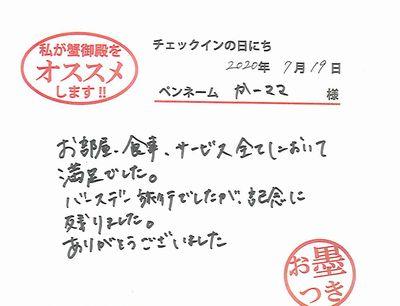 私が蟹御殿を
オススメ
します!!
チェックインの日にち
2020年 7月 19日
ペンネーム かーママ 様
お部屋、食事、サービス全てにおいて
満足でした。
バースデー旅行でしたが、記念に
残りました。
ありがとうございました
お墨
つき